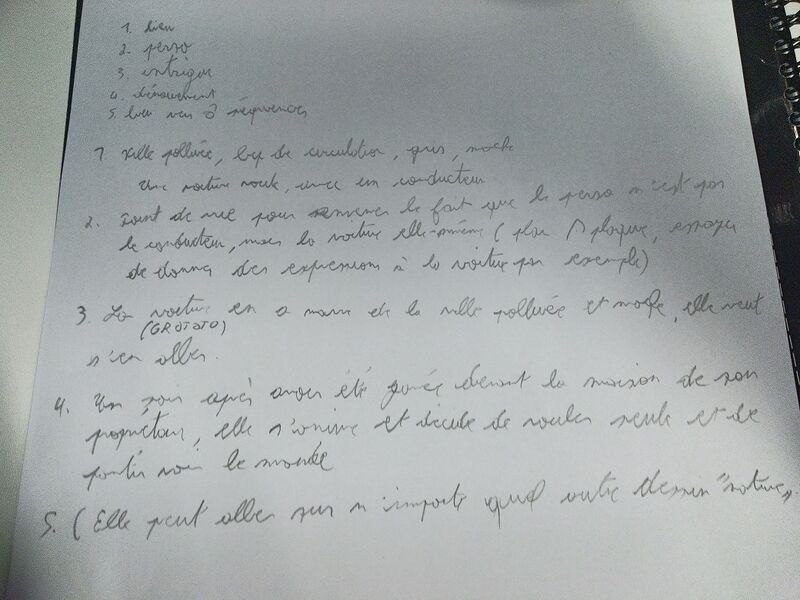 1. lieu
2. perso
3. intrigue
4. dénouement
5. lieu vers séquences
1. Ville polluée, bcp de circulation, gris, moche
Une voiture roule, avec un conducteur
2. Point de vue pour le fait que le perso n'est pas
le conducteur, mais la voiture elle-même (plan plaque, essayer
de donner des expressions à la voiture par exemple)
3. La voiture en a marre de la ville polluée et moche, elle veut
(GROTOTO)
s'en aller.
4. Un soir après avoir été garée devant la maison de son
propriétaire, elle s'anime et décide de rouler seule et de
partir voir le monde
5. (Elle peut aller sur n'importe quel autre dessin